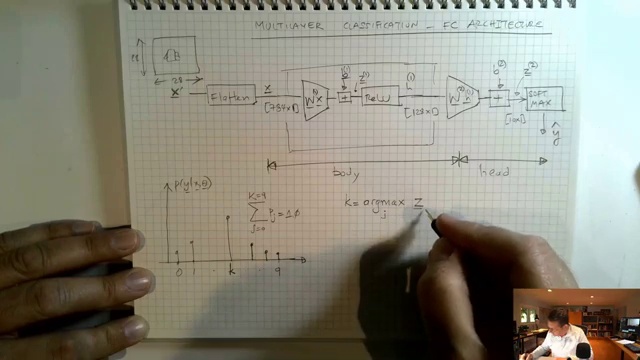 MULTILAYER CLASSIFICATION - FC ARCHITECTURE
28
28
x'
Flatten
x
[784x1]
W⁽¹⁾x
b⁽¹⁾
+
z⁽¹⁾
ReLU
h⁽¹⁾
[128x1]
W⁽²⁾h⁽¹⁾
b⁽²⁾
+
z⁽²⁾
[10x1]
SOFT
MAX
ŷ
body
head
p(y|x,θ)
K=9
∑ pj = 1.0
j=0
0 1 . k 9
k = argmax z
j